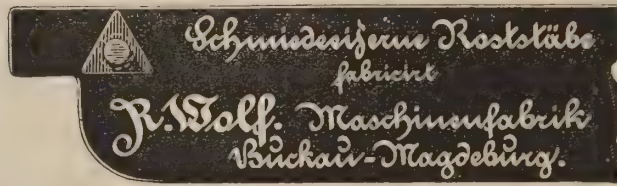 Schmiedeiserne Roststäbe
fabricirt
R. Wolf. Maschinenfabrik
Buckau-Magdeburg.